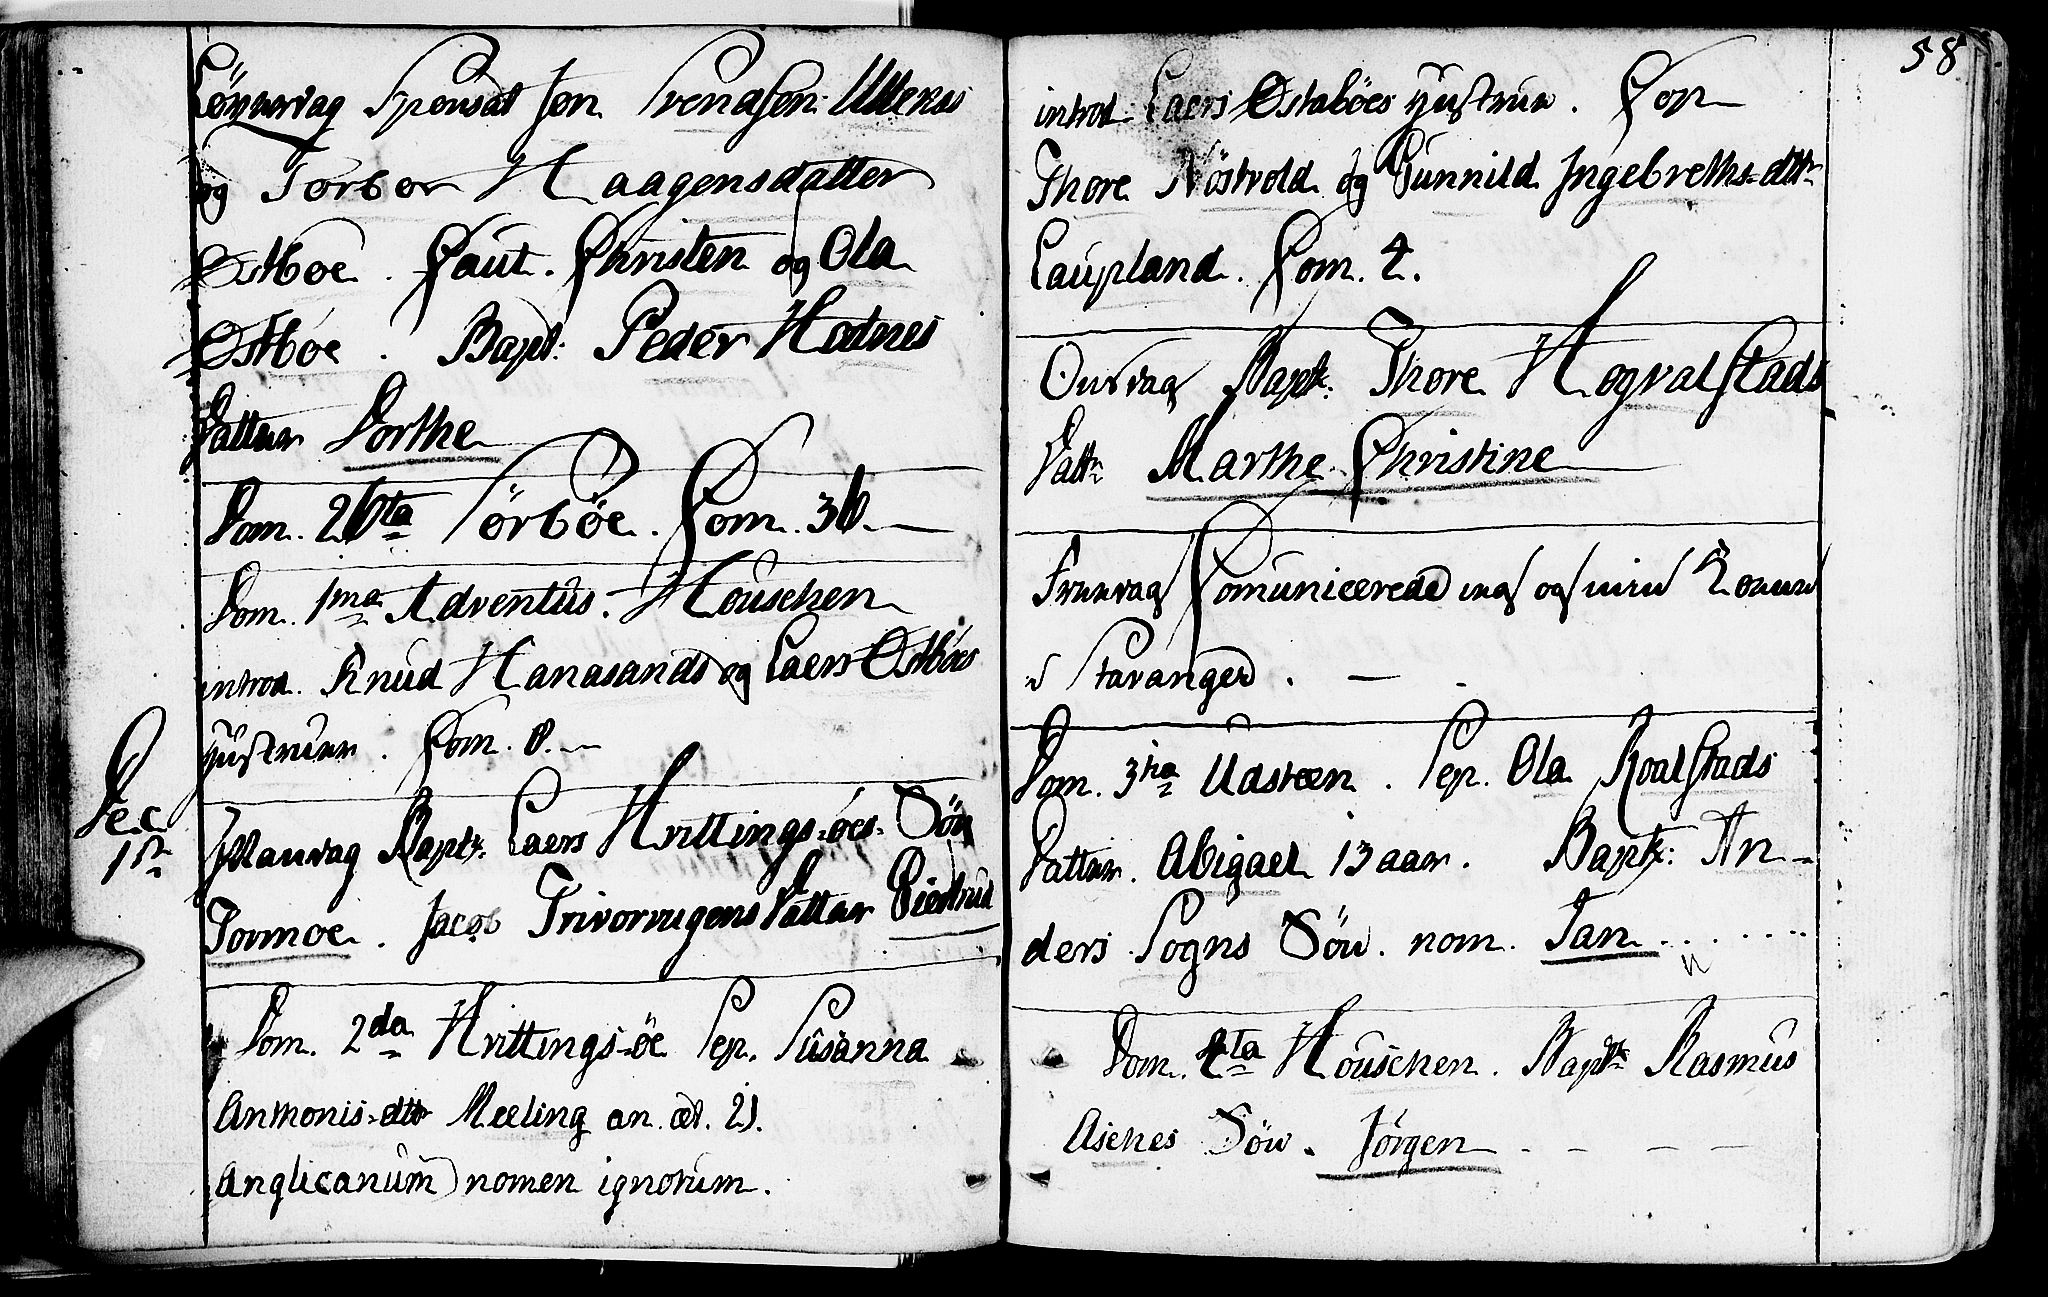 Löverdag Sponsat Jon Svendsen Uttens
og Torbor Haagensdatter
Østbøe. Caut. Christen og Ola
Østbøe. Bapt: Peder Hodnes
Datter Dorthe
Dom. 26ta Sørbøe. Com. 36.
Dom. 1ma Adventus. Houschen
introd. Knud Hanasands og Laers Østbøes
Hustruer. Com. 8.
Dec.
1ste
Mandag Bapt. Laers Hvittings-øes Sön
Tormoe. Jacob Datter Giertrud
Dom. 2da Hvittings-öe Sep. Susanna
Anthonis-dttr Meeling an. æt. 21.
Anglicanum nomen ignotum.
58
introd. Laers Østabøes Hustrue. Cop.
Thore Nöstvold og Gunnild Ingebreths-dttr
Laupland. Com. 4.
Onsdag Bapt. Thore Hognalstads
Dattr Marthe Christine
Fredag Comunicerede ieg og min Kone
i Stavanger.
Dom. 3tia Udsteen. Sep. Ola Roalstads
Datter. Abigael 13 aar. Bapt: An-
ders Sogns Sön. nom. Jan
Dom. 4ta Houschen. Bapt. Rasmus
Asches Sön. Jörgen